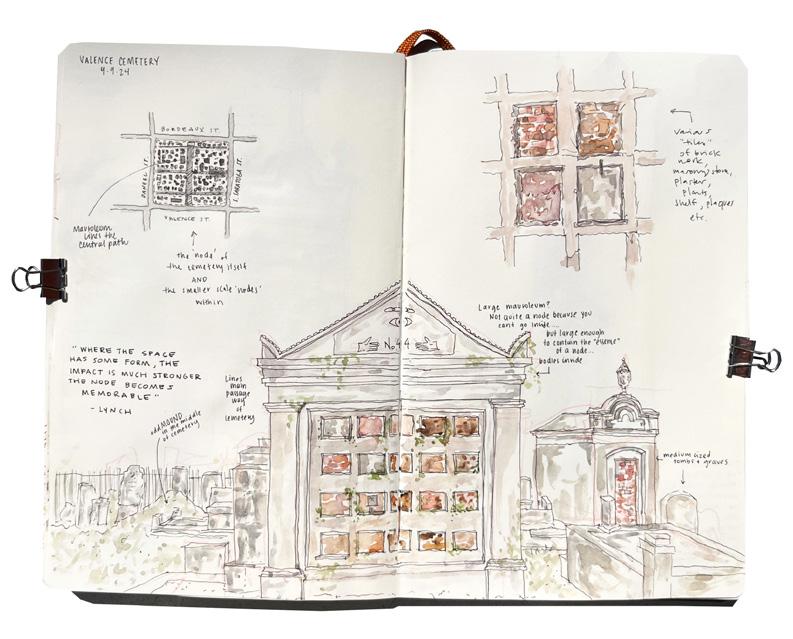 VALENCE CEMETERY
4.9.24
BORDEAUX ST.
DANNEEL ST.
S. SARATOGA ST.
VALENCE ST.
Mausoleum
lines the
central path
the 'node' of
the cemetery itself
AND
the smaller scale 'nodes'
within
"WHERE THE SPACE
HAS SOME FORM, THE
IMPACT IS MUCH STRONGER
THE NODE BECOMES
MEMORABLE"
- LYNCH
odd MOUND
in the middle
of cemetery
Lines
main
passage
way
of
cemetery
No. 44
Various
"tiles"
of brick
work,
masonry, stone,
plaster,
plants,
shelf, plaques
etc.
Large mausoleum?
Not quite a node because you
can't go inside....
but large enough
to contain the "essence"
of a node...
bodies inside
medium sized
tombs + graves